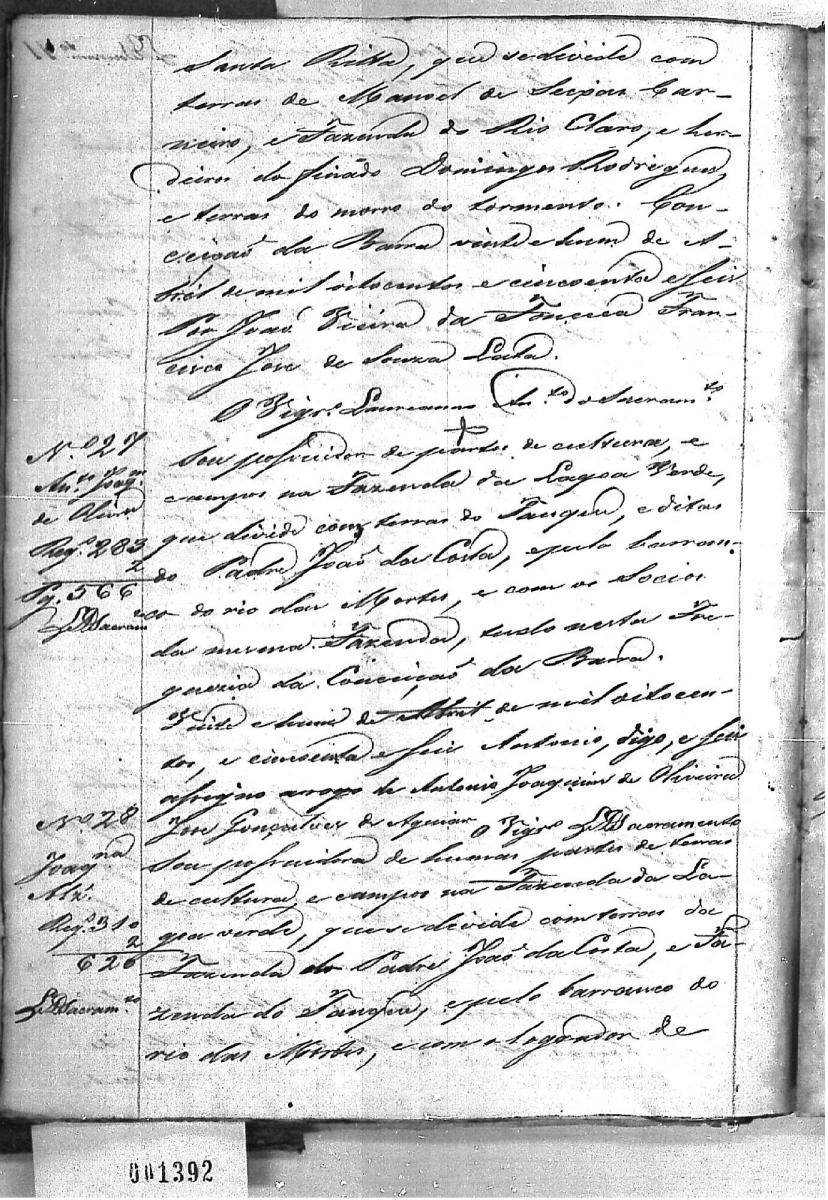 Santa Ritta, que se divide com
terras de Manoel de Seixas Car-
neiro, e Fazenda do Rio Claro, e her-
deiros do finádo Domingos Rodrigues,
e terras do morro do tormento. Con-
ceicaõ da Barra vinte e hum de A-
bril de mil oitocentos e cincoenta e seis
Por Joaõ Vieira da Fonceca Fran-
cisco Jose de Souza Lata.
O Vigrº. Laureanno Antº. do Sacramtº.
Nº 27
Antº. Joaqm
de Olivrª
Regº. 283
2
Pg. 566
Sacramtº
Sou possuidor de partes de cultura, e
campos na Fazenda da Lagoa Verde,
que divide com terras do Tanque, e ditas
do Padre Joaõ da Costa, e pelo barran-
co do rio das Mortes, e com os Socios
da mesma Fazenda, tudo nesta Fre-
guezia da Conceiçaõ da Barra.
Vinte e hum de Abril de mil oitocen-
tos, e cincoenta e seis Antonio, digo, e seis
assigno arogo de Antonio Joaquim de Oliveira
Jose Gonçalves de Aguiar O Vigrº Sacramento
Nº 28
Joaqna
Regº. 310
2
620
Sacramtº
Sou possuidora de humas partes de terras
de cultura, e campos na Fazenda da La-
goa verde, que se divide com terras da
Fazenda do Padre Joaõ da Costa, e Fa-
zenda do Tanque, e pelo barranco do
rio das Mortes, e com o logrador de
001392